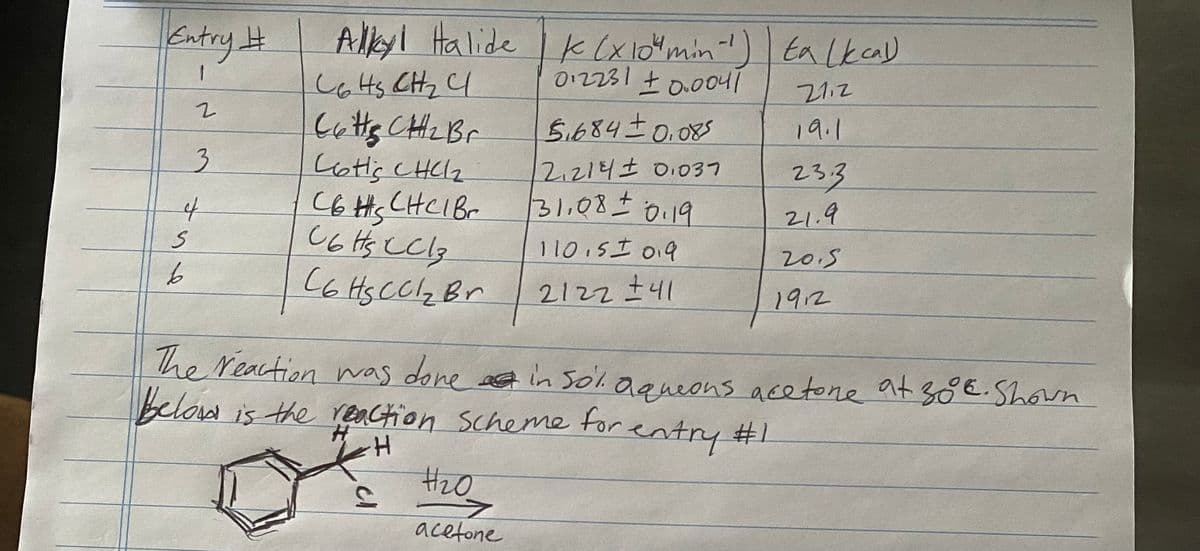 Entry # Alkyl Halide k (x10⁴min⁻¹) Ea (kcal)
1 C6H5CH2Cl 0.2231 ± 0.0041 21.2
2 C6H5CH2Br 5.684 ± 0.085 19.1
3 C6H5CHCl2 2.214 ± 0.037 23.3
4 C6H5CHClBr 31.08 ± 0.19 21.9
5 C6H5CCl3 110.5 ± 0.9 20.5
6 C6H5CCl2Br 2122 ± 41 19.2
The reaction was done in 50% aqueous acetone at 30°C. Shown
below is the reaction scheme for entry #1
H
H
Cl
H2O
acetone